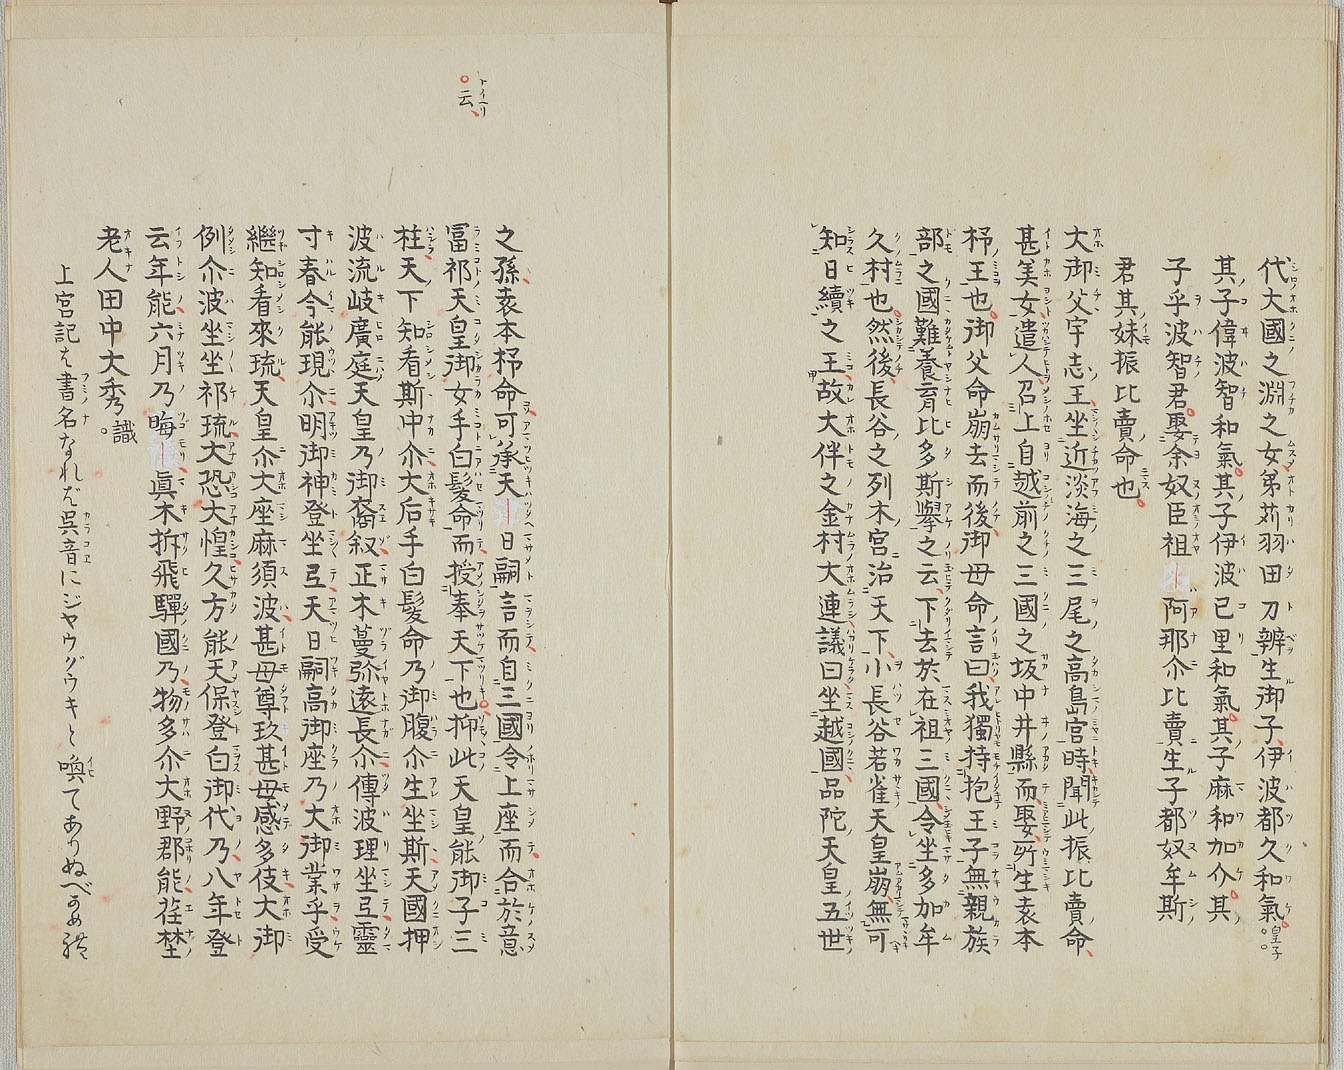 代大國之淵之女弟苅羽田刀辨生御子伊波都久和氣。皇子。。
其子偉波智和氣。其子伊波己里和氣。其子麻和加介。其
子乎波智君。娶余奴臣祖阿那尒比賣生子都奴牟斯
君其妹振比賣命也。
大御父宇志王坐近淡海之三尾之高島宮時聞此振比賣命、
甚美女遣人召上自越前之三國之坂中井縣而娶所生袁本
杼王也。御父命崩去而後御母命言曰我獨持抱王子無親族
部之國難養育比多斯擧之云下去於在祖三國令坐多加牟
久村也。然後長谷之列木宮治天下小長谷若雀天皇崩無可
知日續之王故大伴之金村大連議曰坐越國品陀天皇五世
之孫袁本杼命可承天日嗣言而自三國令上座而合於意
。云、トイヘリ
冨祁天皇御女手白髮命而授奉天下也。抑此天皇能御子三
柱天下知看斯中尒大后手白髮命乃御腹尒生坐斯天國押
波流岐廣庭天皇乃御裔叙正木蔓弥遠長尒傳波理坐弖靈
寸春今能現尒明御神登坐弖天日嗣高御座乃大御業乎受
繼知看來琉天皇尒大座麻須波甚母尊玖甚母感多伎大御
例尒波坐坐祁琉大恐大惶久方能天保登白御代乃八年登
云年能六月乃晦眞木拆飛驒國乃物多尒大野郡能荏埜
老人田中大秀識。
上宮記は書名なれば呉音にジヤウグウキと喚てありぬべ